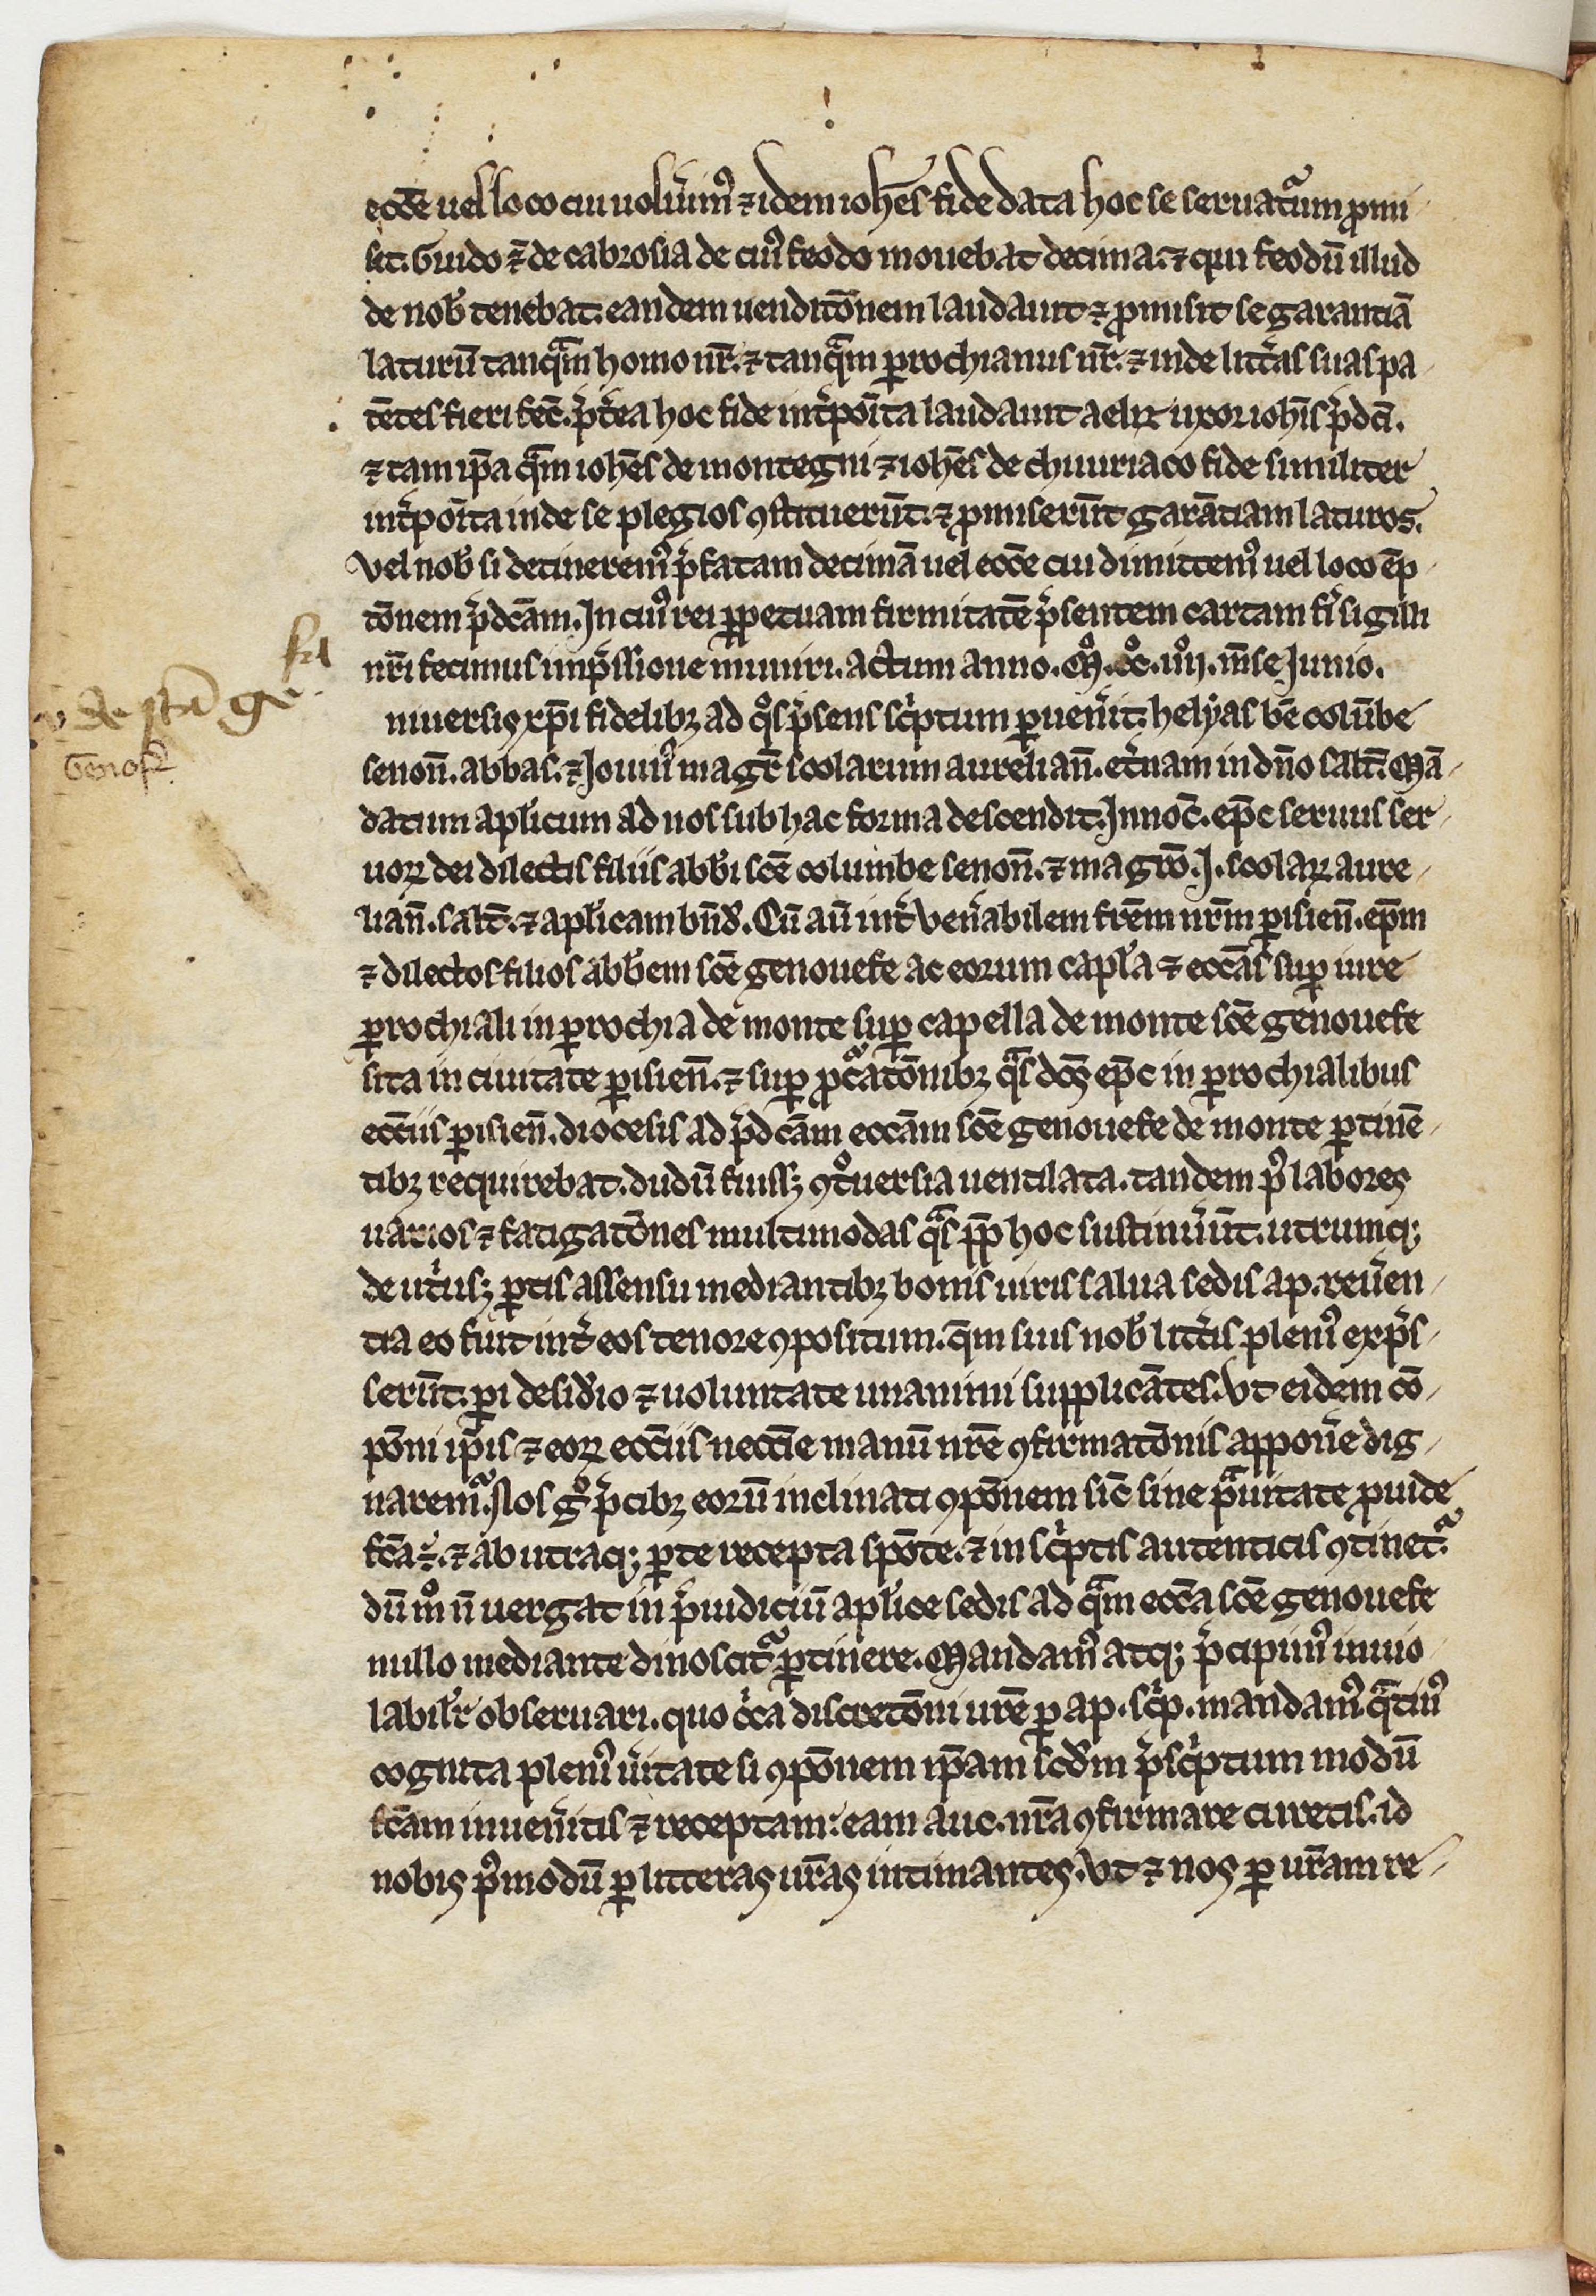 eccłe uel loco cui uolu̾imꝰ ⁊ idem ioħes fide data hoc se seruatuᷓm ꝓmi
sit. Guido ⁊̄ de cabrosia de ciuꝰ feodo mouebat decima. ⁊ qui feodū illud
de nob̾ tenebat. eandem uenditōnem laudauit ⁊ ꝓmisit se garantiā
laturū tanqᷓm homo nr̄. ⁊ tanqᷓm ꝑrochianus nr̄. ⁊ inde litt̾as suas pa
tētes fieri fec̄. p̾t̾ea hoc fide int̾poĩta laudauit aelix uxor ioħis p̾dc̄i.
⁊ tam ip̄a qᷓm ioħes de montegni ⁊ ioħes de chiuuriaco fide similiter
int̾poĩta inde se plegios ꝯstituerūt. ⁊ ꝓmiserūt garātiam laturos.
Vel nob̾ si detineremꝰ p̾fatam decimā uel eccłe cui dimittemꝰ uel loco ēp
tōnem p̾dc̄am. In ciuꝰ rei ꝑpetuam firmitatē p̾sentem cartam fi̾ sigilli
nr̄i fecimus imp̾ssione muniri. actum anno. M̊. cc̊. iiij̊. m̄se Junio.
niuersis xp̄i fidelibꝫ ad qͦs p̾sens sc̾ptum ꝑuen̾it. helyas bē colūbe
senoñ. abbas. ⁊ Jouinꝰ mag̾r scolarum aureliañ. et̾nam in dn̄o salt̄. Mā
datum apl̾icum ad nos sub hac forma descendit. Innoc̄. ep̄c seruus ser
uoꝝ dei dilectis filiis abb̾i sc̄e columbe senoñ. ⁊ magr̄o. J. scolaꝝ aure
liañ. salt̄. ⁊ apl̾icam bn̄d̾. Cū aū int̾ ven̾abilem frēm nrm̄ ꝑisieñ. ep̄m
⁊ dilectos filios abb̾em sc̄e genouefe ac eorum capl̾a ⁊ ecc̄as suꝑ iure
ꝑrochiali in ꝑrochia de monte suꝑ capella de monte sc̄e genouefe
sita in ciuitate ꝑisieñ. ⁊ suꝑ ꝓcᷓatōnibꝫ qᷓs dc̄s ep̄c in ꝑrochialibus
ecc̄iis ꝑisieñ. diocesis ad p̾dc̄am ecc̄am sc̄e genouefe de monte ꝑtinē
tibꝫ requirebat. dudū fuissꝫ ꝯtͦuersia uentilata. tandem pꝰ labores
uarios ⁊ fatigatōnes multimodas qᷓs ꝓp̄ hoc sustinu̾ūt. utrumqꝫ
de ut̾usqꝫ ꝑtis assensu mediantibꝫ bonis uiris salua sedis ap. reu̾en
tia eo fuit int̾ eos tenore ꝯpositum. q̄m suis nob̾ litt̾is plenꝰ exp̾s
serūt. ꝑi desid̾io ⁊ uoluntate unanimi supplicātes. Vt eidem cō
pōni ip̄is ⁊ eoꝝ ecc̄iis necc̄ie manū nrē ꝯfirmatōnis appon̾e dig
naremᷓ. Nos gͦ p̾cibꝫ eorū inclinati ꝯpōnem sic̄ sine pᷓuitate ꝓuide
fc̄a ⁊̄. ⁊ ab utraqꝫ ꝑte recepta spōte. ⁊ in sc̾ptis autenticis ꝯtinetᷓ.
dū mͦ n̄ uergat in p̾iudiciū apl̾ice sedis ad qᷓm ecc̄a sc̄e genouefe
nullo mediante dinoscitᷓ ꝑtinere. Mandamꝰ atqꝫ p̾cipimꝰ inuio
labil̾r obseruari. quo c̾ca discretōni ur̄e ꝑ ap. sc̾p. mandamꝰ qᷓtinꝰ
cognita plenꝰ u̾itate si ꝯpōnem ip̄am scd̾m p̾sc̾ptum modū
fc̄am inuen̾itis ⁊ receptam: eam auc. nr̄a ꝯfirmare curetis. id
nobis pꝰmodū ꝑ litteras ur̄as intimantes. Vt ⁊ nos ꝑ ur̄am re